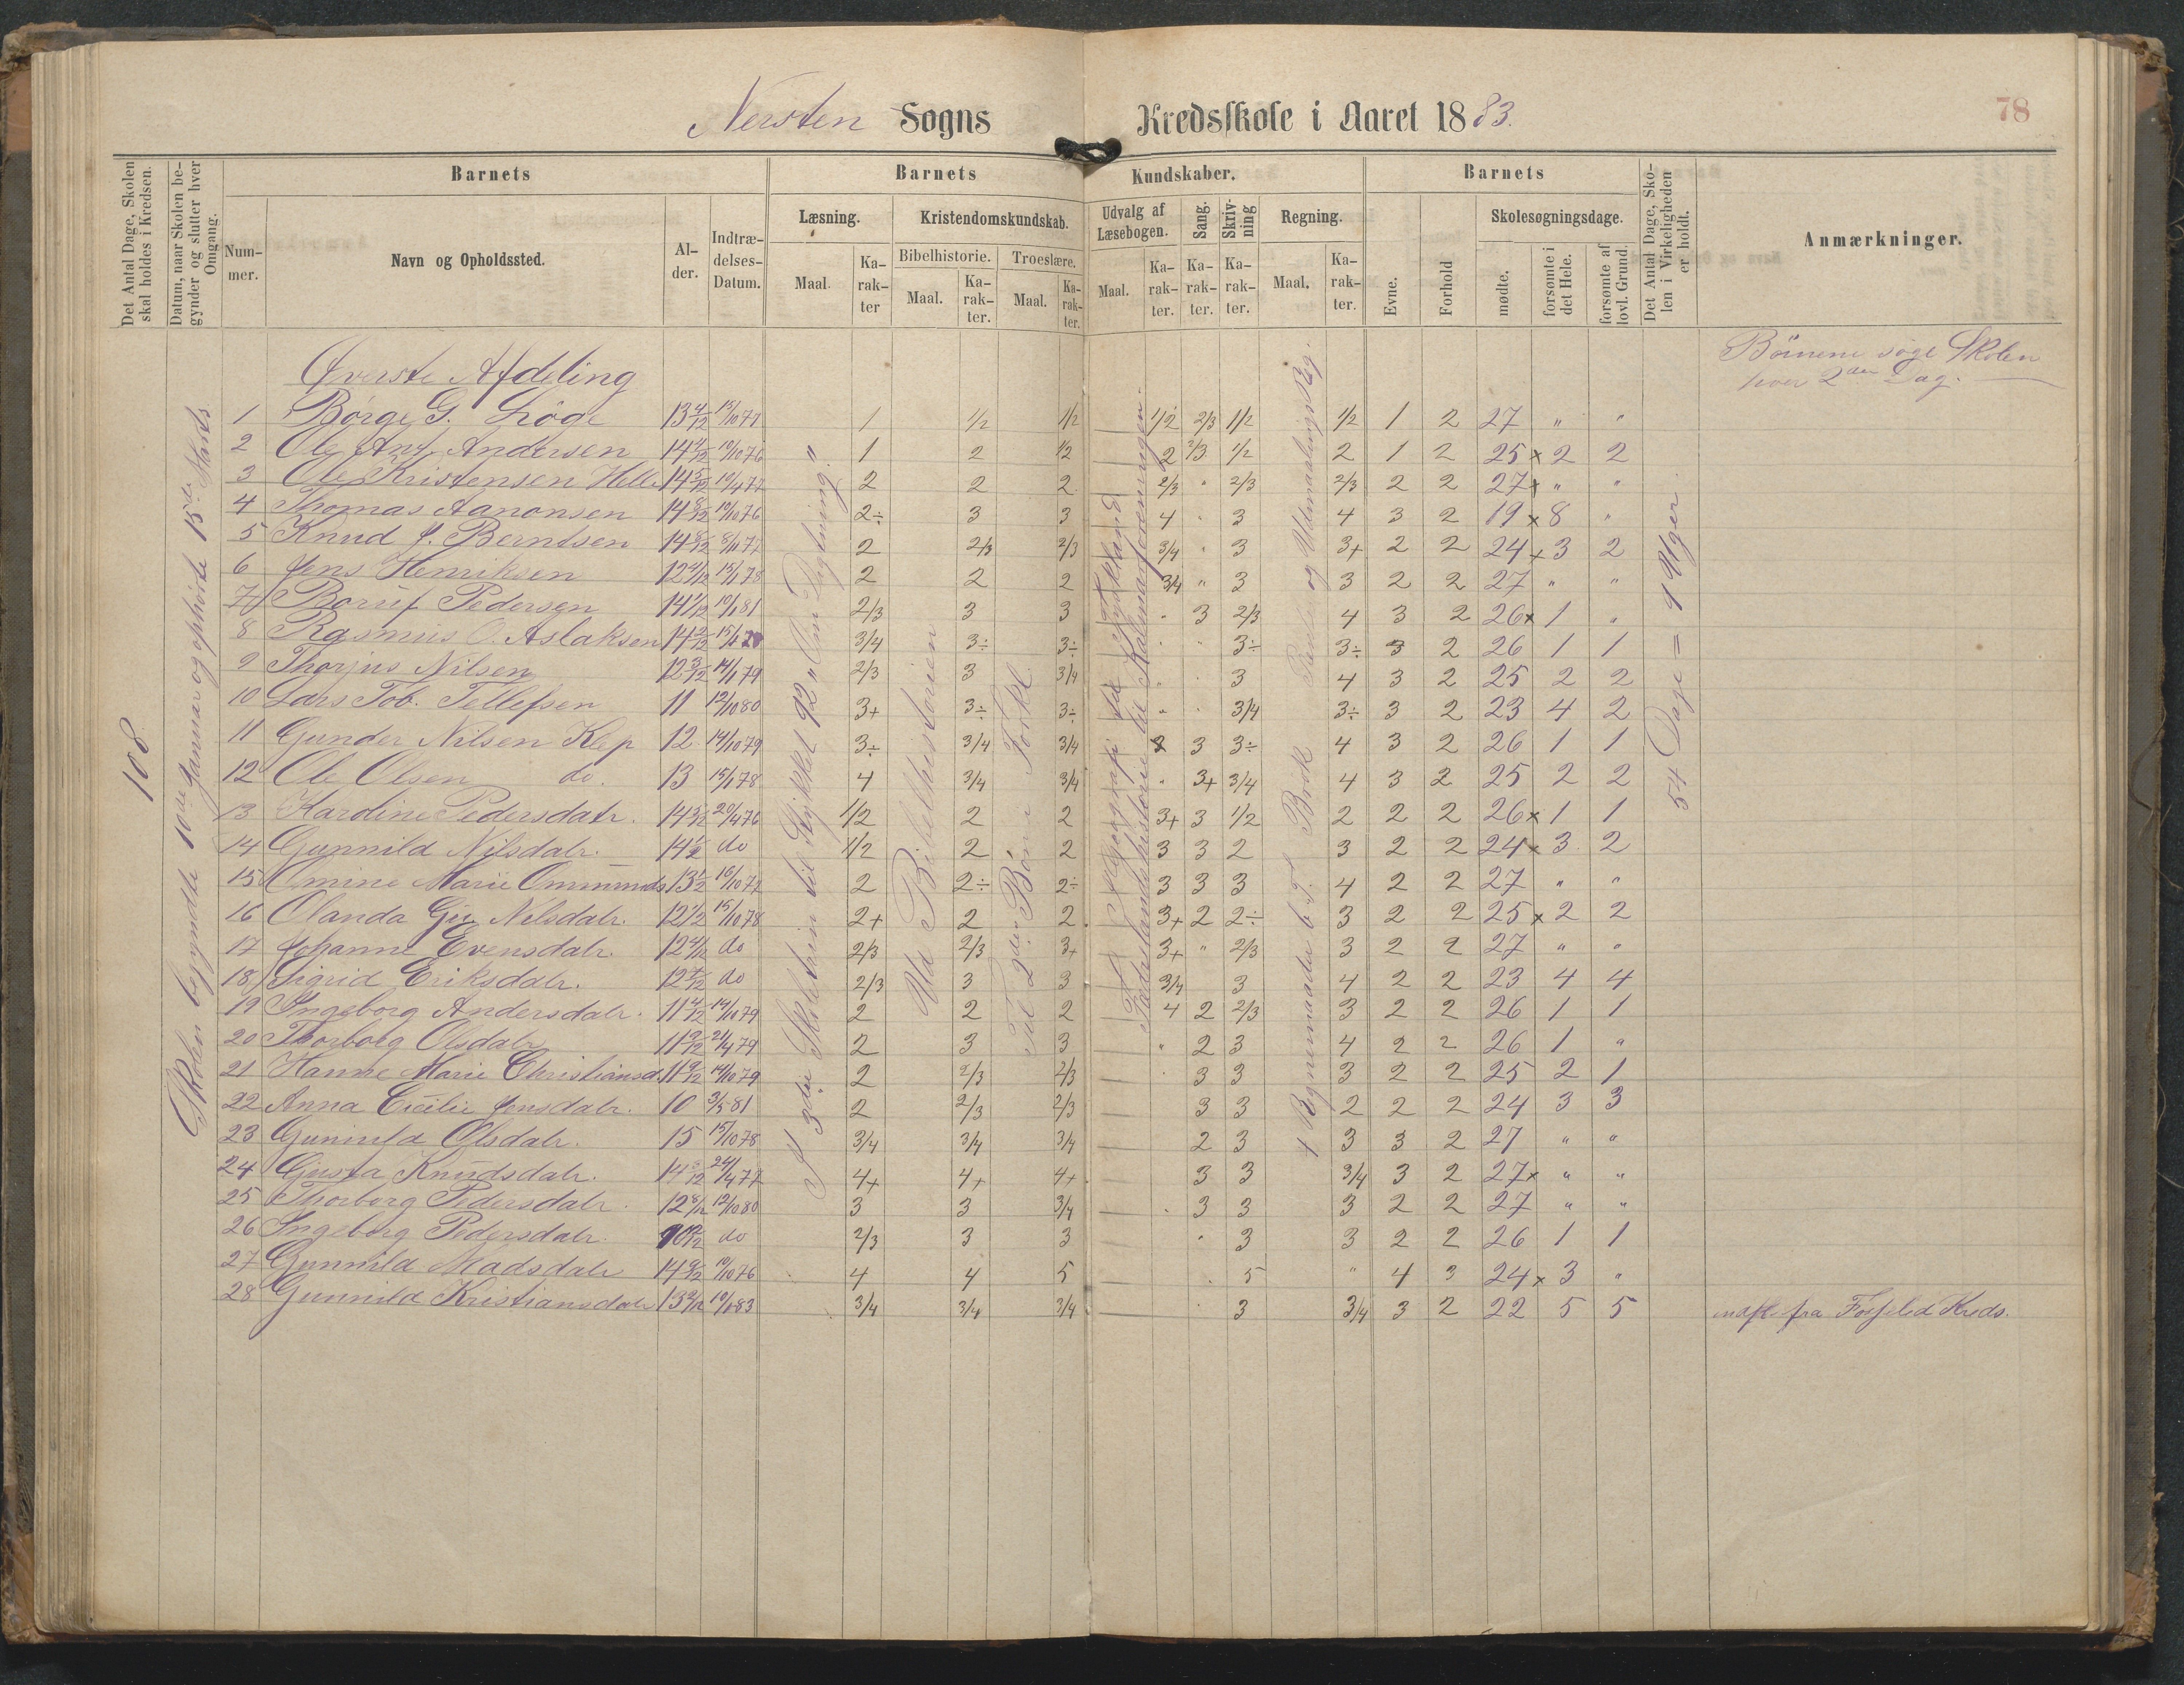 78
Nersten Sogns Kredsskole i Aaret 1883.
Det Antal Dage, Skolen skal holdes i Kredsen.
Datum, naar Skolen begynder og slutter hver Omgang.
Barnets
Nummer.
Navn og Opholdssted.
Alder.
Indtrædelses-Datum.
Barnets Kundskaber.
Læsning.
Maal.
Karakter
Kristendomskundskab.
Bibelhistorie.
Maal.
Karakter.
Troeslære.
Maal.
Karakter.
Udvalg af Læsebogen.
Maal.
Karakter.
Sang.
Karakter.
Skrivning
Karakter.
Regning.
Maal.
Karakter.
Barnets
Evne.
Forhold
Skolesøgningsdage.
mødte.
forsømte i det Hele.
forsømte af lovl. Grund.
Det Antal Dage, Skolen i Virkeligheden er holdt.
Anmærkninger.
Børnene søge Skolen
hver 2den Dag.
108
Skolen begyndte 10de Januar og ophørte 15de Marts
I 3die Skoletrin til Stykket 92 "Om Dagligning."
Ud Bibelhistorien
Til 2den Bøn i Forkl
Fædrelandshistorie til Kalmarforeningen.
4 Regnemaader b. T. Brøk
og Udmaalings Reg.
54 Dage = 9 Uger
Øverste Afdeling
1 Børge G. Løge 13 4/12 15/10 77 1 1/2 1/2 1/2 2/3 1/2 1/2 1 2 27 " "
2 Ole Ant. Andersen 10/10 76 1 2 1/2 2 2/3 1/2 2 1 2 25 x 2 2
3 Ole Kristensen Helle 14 5/12 19/4 77 2 2 2 2/3 " 2/3 2/3 2 2 27 x " "
4 Thomas Aanonsen 14 8/12 10/10 76 2÷ 3 3 4 3 4 3 2 19 x 8 "
5 Knud J. Berntsen 14 8/12 8/1 77 2 2/3 2/3 3/4 3 3+ 2 2 24 x 3 2
6 Jens Henriksen 15/1 78 2 2 2 3/4 " 3 3 2 2 27 " "
7 Pedersen 14 1/12 10/1 81 2/3 3 3 " 3 2/3 4 3 2 26 x 1 "
8 Rasmus O. Aslaksen 14 2/12 3/4 3÷ 3÷ 3÷ 3÷ 3 2 26 1 1
9 Thorjus Nilsen 12 3/12 14/1 79 2/3 3 3/4 " 3 4 3 2 25 2 2
10 Lars Tob. Tellefsen 11 12/10 80 3+ 3÷ 3÷ " 3/4 3÷ 3 2 23 4 2
11 Gunder Nilsen Klep 12 14/10 79 3÷ 3/4 3/4 3 3÷ 4 3 2 26 1 1
12 Ole Olsen do. 13 15/1 78 4 3/4 3/4 " 3+ 3/4 4 3 2 25 2 2
13 Karoline Pedersdatr. 14 5/12 20/4 76 1/2 2 2 3+ 3 1/2 2 2 2 26 x 1 1
14 Gunnild Nilsdatr. 14 1/2 do 1/2 2 2 3 3 2 3 2 2 24 x 3 2
15 Omine Marie Ommunds 13 1/2 16/10 77 2 2÷ 2÷ 3 3 3 4 2 2 27 " "
16 Olanda Nilsdatr. 12 1/2 15/10 78 2+ 2 2 3+ 2 2÷ 3 2 2 25 x 2 2
17 Johanne Evensdatr. do 2/3 2/3 3+ 3+ " 2/3 3 2 2 27 " "
18 Sigrid Eriksdatr. do 2/3 3 3 3/4 3 4 2 2 23 4 4
19 Ingeborg Andersdatr. 11 4/12 14/10 79 2 2 2 4 2 2/3 3 2 2 26 1 1
20 Thorborg Olsdatr 11 9/12 21/4 79 2 3 3 " 2 3 4 2 2 26 1 "
21 Hanne Marie Christiansd. 11 9/12 14/10 79 2 2/3 2/3 3 3 3 2 2 25 2 1
22 Anna Cecilie Jensdatr. 10 3/5 81 2 2/3 2/3 3 3 2 2 2 24 3 3
23 Gunnild Olsdatr. 15 15/10 78 3/4 3/4 3/4 2 3 3 3 2 27 " "
24 Knudsdatr. 24/4 77 4+ 4+ 4+ 3 3 3/4 3 2 27 x " "
25 Thorborg Pedersdatr. 12 8/12 12/10 80 3 3 3/4 3 3 3 2 2 27 " "
26 Ingeborg Pedersdatr. do 2/3 3 3 3 3 2 2 26 1 1
27 Gunnild Madsdatr 14 9/12 10/10 76 4 4 5 5 " 4 3 24 x 3 "
28 Gunnild Kristiansdatr 13 9/12 10/1 83 3/4 3/4 3/4 3 3/4 3 2 22 5 5 indfl. fra Kreds.